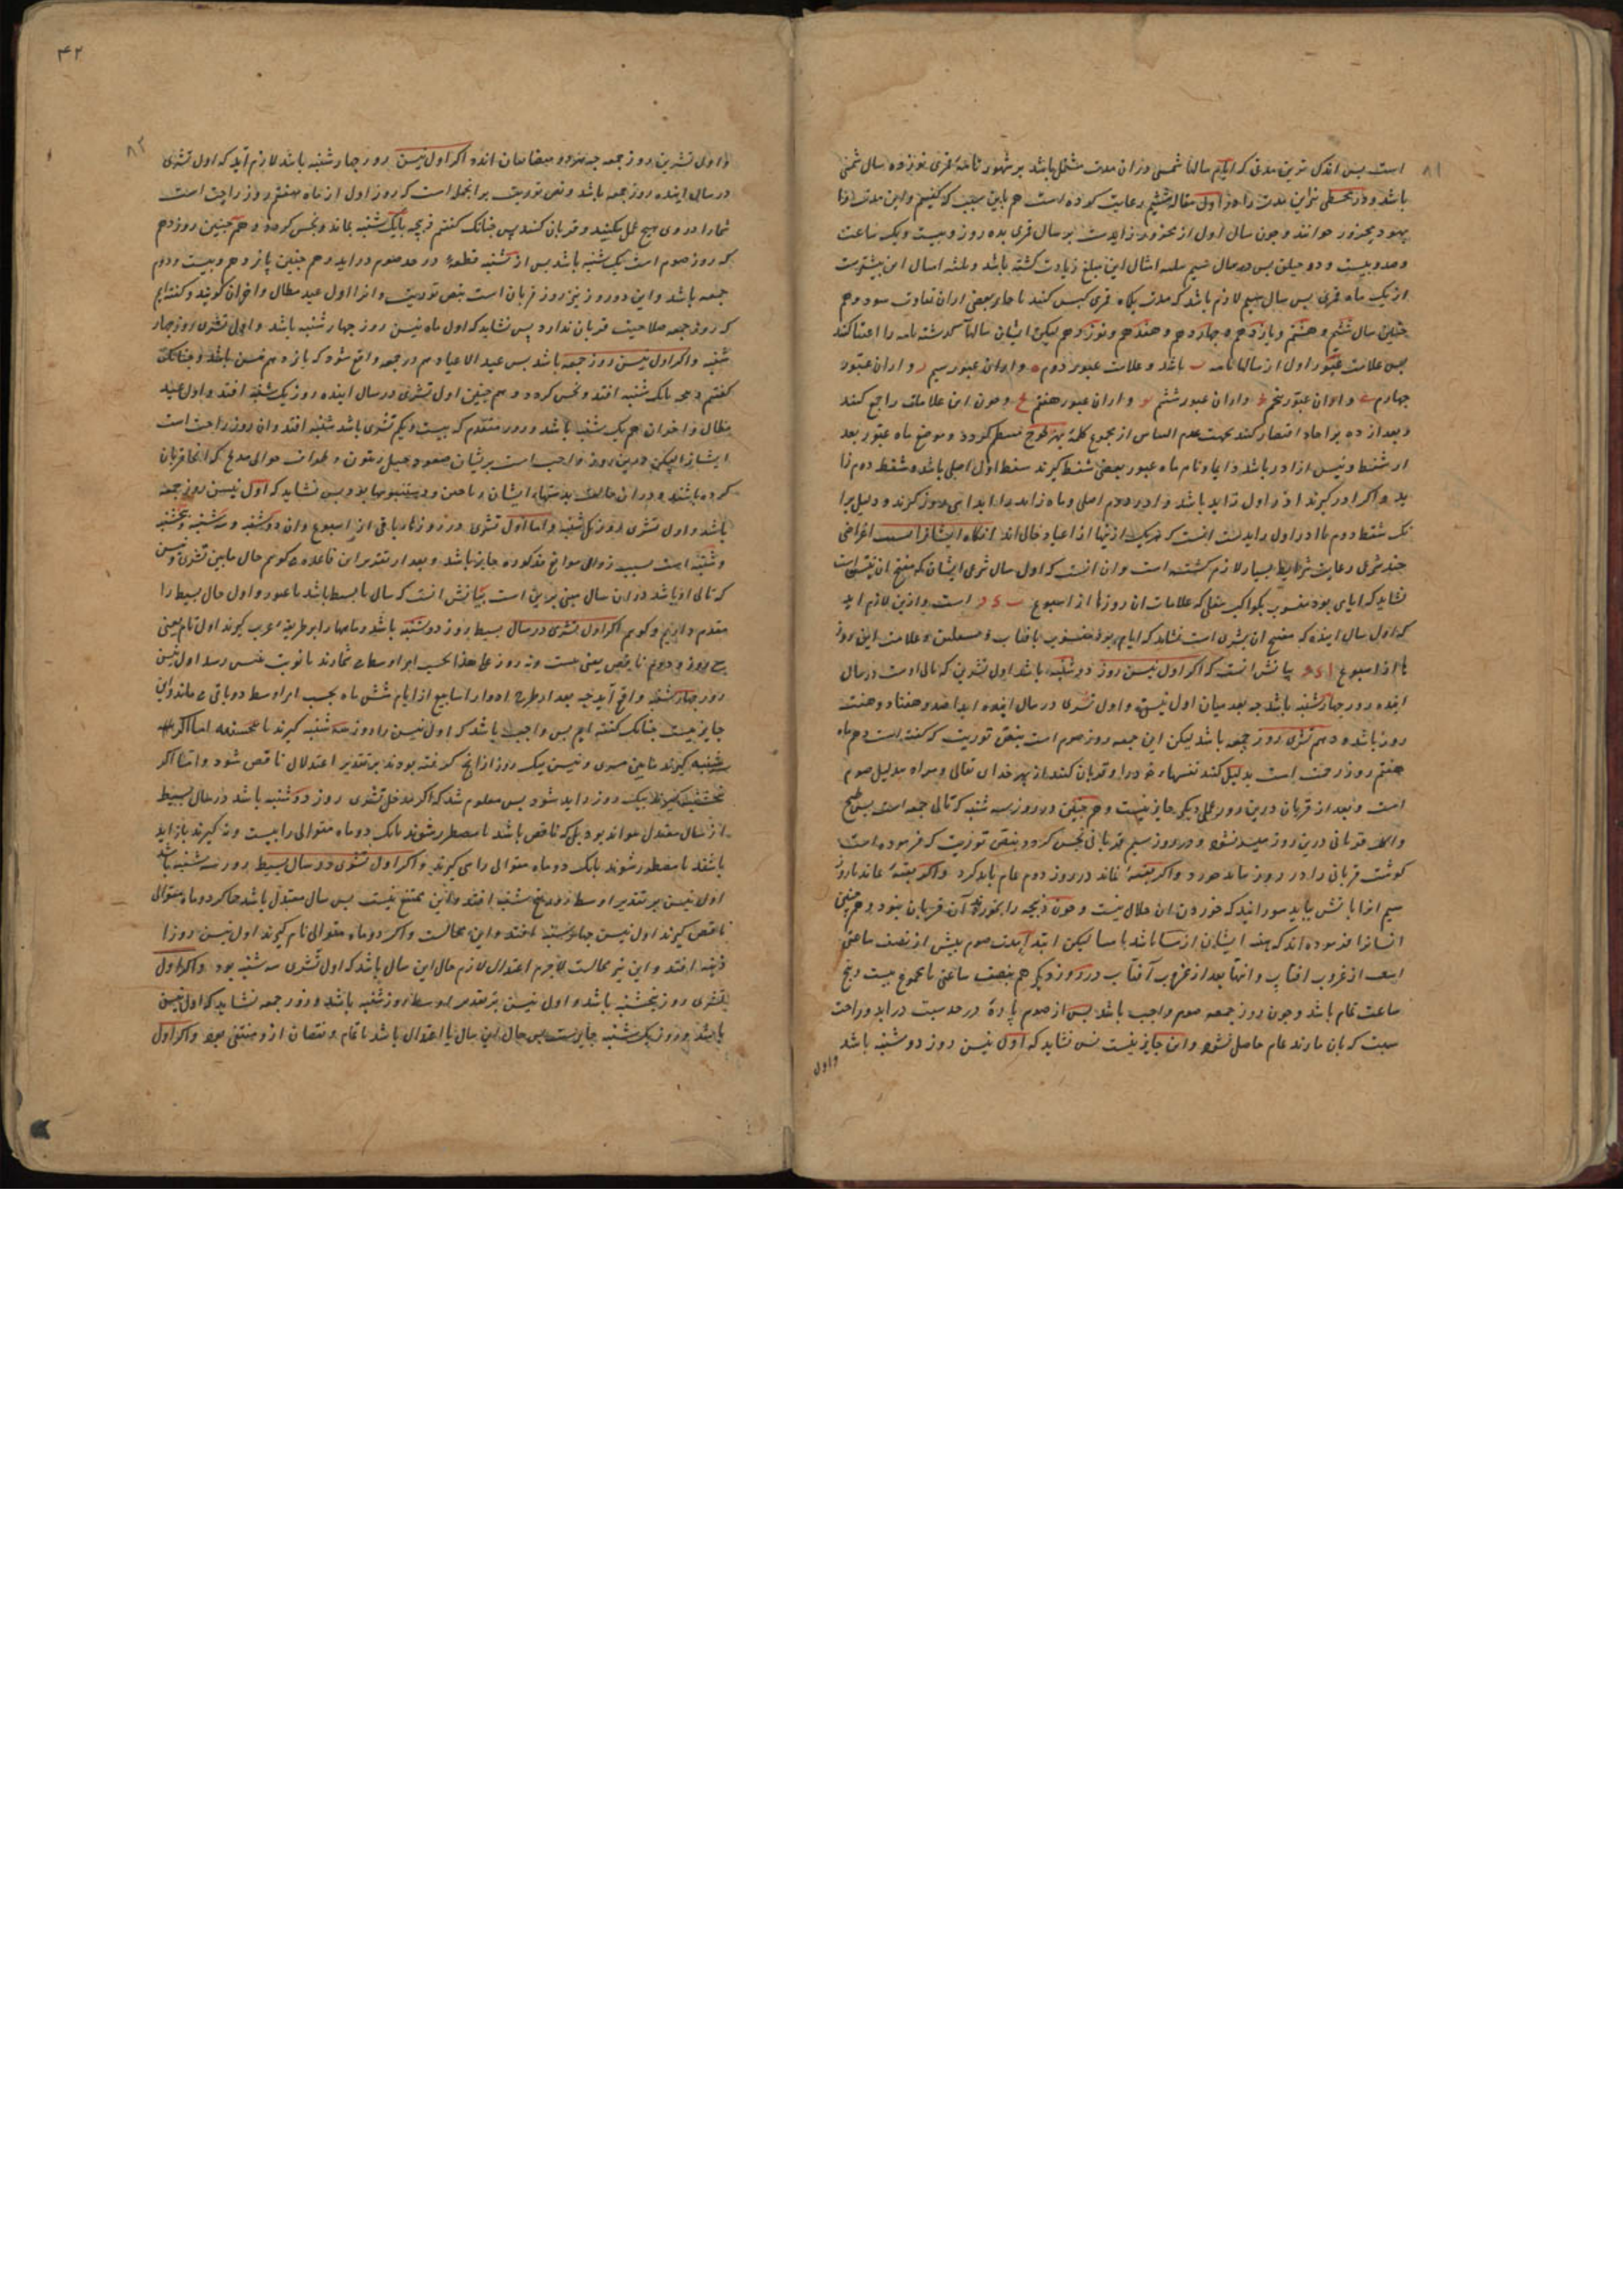 ۸۱
است پس اندک ترین مدتی که ایام سالها شمسی در ان مدت مشتمل باشد بر شهور تامهٔ قمری نوزده سال شمسی
باشد و در مجسطی نیز این مدت را در اول مقاله ششم رعایت کرده است هم باین سبب که گفتیم و این مدت را
یهود محزور خوانند و چون سال اول از محزور زایدست بر سال قمری بده روز و بیست و یک ساعت
از یک ماه قمری پس سال سیم لازم باشد که مدت یکماه قمری کبس کنند
چنین سال ششم و هشتم و یازدهم و چهاردهم و هفدهم و نوزدهم لیکن ایشان سالها گذشته تامه را اعتبا کنند
پس علامت عبور اول از سالها تامه ب باشد و علامت عبور دوم ه و ازان عبور سیم ز و ازان عبور
چهارم و ازان عبور پنجم و ازان عبور ششم و ازان عبور هفتم و چون این علامات را جمع کنند
و بعد از ده بر احاد اقتصار کنند بجهت عدم التباس از مجموع کلمهٔ بهزیجوح منتظم گردد و موضع ماه عبور بعد
از شفط و نیسن اذار باشد و نام ماه عبور بعضی شفط گیرند شفط اول اصلی باشد و شفط دوم زا
ید و اگر اذر گیرند اذر اول زاید باشد و اذر دوم اصلی و ماه زاید را
چند شرعی رعایت شرایط بسیار لازم گشته است و ان انست که اول سال شرعی ایشان که مفتح ان نیسن است
نشاید که ایامی بود منسوب بکواکب سفلی که علامات ان روزها از اسبوع ب د و است و ازین لازم اید
که اول سال اینده که مفتح ان تشری است نشاید که ایام بود منسوب بافتاب و سفلیین و علامت این روز
ها از اسبوع ا د و بیانش انست که اگر اول نیسن روز دوشنبه باشد اول تشرین که تالی اوست در سال
اینده روز چهارشنبه باشد چه بعد میان اول نیسن و اول تشری در سال اینده ابدا صد و هفتاد و هفت
روز باشد و دهم تشری روز جمعه باشد لیکن این جمعه روز صوم است بنص توریت که گفته است دهم ماه
هفتم روز رحمت است بذلیل کنند نفسهاء خود را و قربان کنند از بهر خدای تعالی و مراد بذلیل صوم
است و بعد از قربان درین روز عملی دیگر جایز نیست و هم چنین در روز سه شنبه که تالی جمعه است پس طبخ
گوشت قربانی را در روز ماند خورد و اگر بقیهٔ ماند در روز دوم تمام باید کرد و اگر بقیهٔ ماند تا روز
سیم انرا باتش باید سوزانید که خوردن ان حلال نیست و چون ذبیحه را بخورند آن قربان بنود و هم چنین
ایشانرا فرموده اند که ایشان از مسا باشد تا مسا لیکن ابتدا مدت صوم پیش از نصف ساعتی
است از غروب افتاب و انتها بعد از غروب آفتاب در روز دیگر هم بنصف ساعتی تا مجموع بیست و پنج
ساعت تمام باشد و چون روز جمعه صوم واجب باشد پس از صوم پارهٔ در حد سبت دراید و راحت
سبت که بان مأمورند تمام حاصل نشود و این جایز نیست پس نشاید که اول نیسن روز دوشنبه باشد
واول
۴۲
۸۲
و اول تشرین روز جمعه اگر اول نیسن روز چهارشنبه باشد لازم آید که اول تشری
در سال اینده روز جمعه باشد و نص توریت بر انجمله است که روز اول از ماه هفتم روز راحت است
شمارا در وی هیچ عمل مکنید و قربان کنند پس چنانک گفتیم ذبیحه تا یک شنبه بماند و نجس گردد و هم چنین روز دهم
که روز صوم است یک شنبه باشد پس از شنبه قطعهٔ در حد صوم دراید و هم چنین پانزدهم و بیست و دوم
جمعه باشد و این دو روز نیز روز قربان است بنص توریت و انرا اول عید مطال و اخران گویند و گفته ایم
که روز جمعه صلاحیت قربان ندارد پس نشاید که اول ماه نیسن روز چهارشنبه باشد و اول تشری روز چهار
شنبه و اگر اول نیسن روز جمعه باشد پس عید الاعیاد هم در جمعه واقع شود که پانزدهم نیسن باشد و چنانک
گفتیم ذبیحه تا یک شنبه افتد و نجس گردد و هم چنین اول تشری در سال اینده روز یک شنبه افتد و اول عید
مطال و اخران هم یک شنبه باشد و روز متقدم که بیست و یکم تشری باشد شنبه افتد و ان روز راحت است
ایشانرا لیکن درین روز واجب است بریشان صعود بجبل زیتون و طواف حوالی مذبح که انجا قربان
کرده باشند و در ان حالت بدستهاء ایشان ریاحین و دستنبوها بود پس نشاید که اول نیسن روز جمعه
باشد و اول تشری روز یک شنبه و اما اول تشری در روزها باقی از اسبوع و ان دوشنبه و سه شنبه و پنجشنبه
و شنبه است بسبب زوال موانع مذکوره جایز باشد و بعد از تقریر این قاعده گویم حال مابین تشری و نیسن
که تالی او باشد در ان سال مبنی برین است بیانش انست که سال یا بسیط باشد یا عبور و اول حال بسیط را
مقدم داریم و گویم اگر اول تشری در سال بسیط روز دوشنبه باشد و ماهها را بر طریقهٔ عرب گیرند اول تام یعنی
سی روز و دوم ناقص یعنی بیست و نه روز علی هذا بحسب امر اوسط شمارند تا نوبت بنیسن رسد اول نیسن
روز چهارشنبه واقع آید چه بعد از طرح ادوار اسابیع از ایام شش ماه بحسب امر اوسط دو باقی ماند و این
جایز نیست چنانک گفته ایم پس واجب باشد که اول نیسن را روز سه شنبه گیرند یا پنجشنبه اما اگر سه
شنبه گیرند مابین تشری و نیسن بیک روز ازانچ گرفته بودند بر تقدیر اعتدال ناقص شود و اما اگر
پنجشنبه گیرند بیک روز زاید شود پس معلوم شد که اگر مدخل تشری روز دوشنبه باشد در سال بسیط
از سال معتدل نتواند بود بل که ناقص باشد تا مضطر شوند بانک دو ماه متوالی را بیست و نه گیرند یا زاید
باشد تا مضطر شوند بانک دو ماه متوالی را سی گیرند و اگر اول تشری در سال بسیط روز سه شنبه باشد
اول نیسن بر تقدیر اوسط روز پنج شنبه افتد و این ممتنع نیست پس سال معتدل باشد چه اگر دو ماه متوالی
ناقص گیرند اول نیسن چهارشنبه افتد و این محالست و اگر دو ماه متوالی تام گیرند اول نیسن روز ا
دینه افتد و این نیز محالست لاجرم اعتدال لازم حال این سال باشد که اول تشری سه شنبه بود و اگر اول
تشری روز پنجشنبه باشد و اول نیسن بر تقدیر اوسط روز شنبه باشد و روز جمعه نشاید که اول نیسن
باشد و روز یک شنبه جایز ست پس حال این سال یا اعتدال باشد یا تمام و نقصان ازو منتفی بود و اگر اول